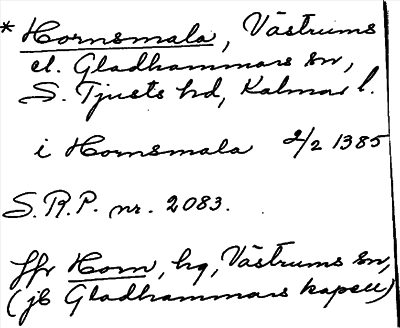 * Hornsmala, Västrums
el. Gladhammars sn,
S. Tjusts hd, Kalmar l.
i Hornsmala 2/2 1385
S.R.P. nr. 2083.
Jfr Horn, hg, Västrums sn,
(jb Gladhammars kapell)